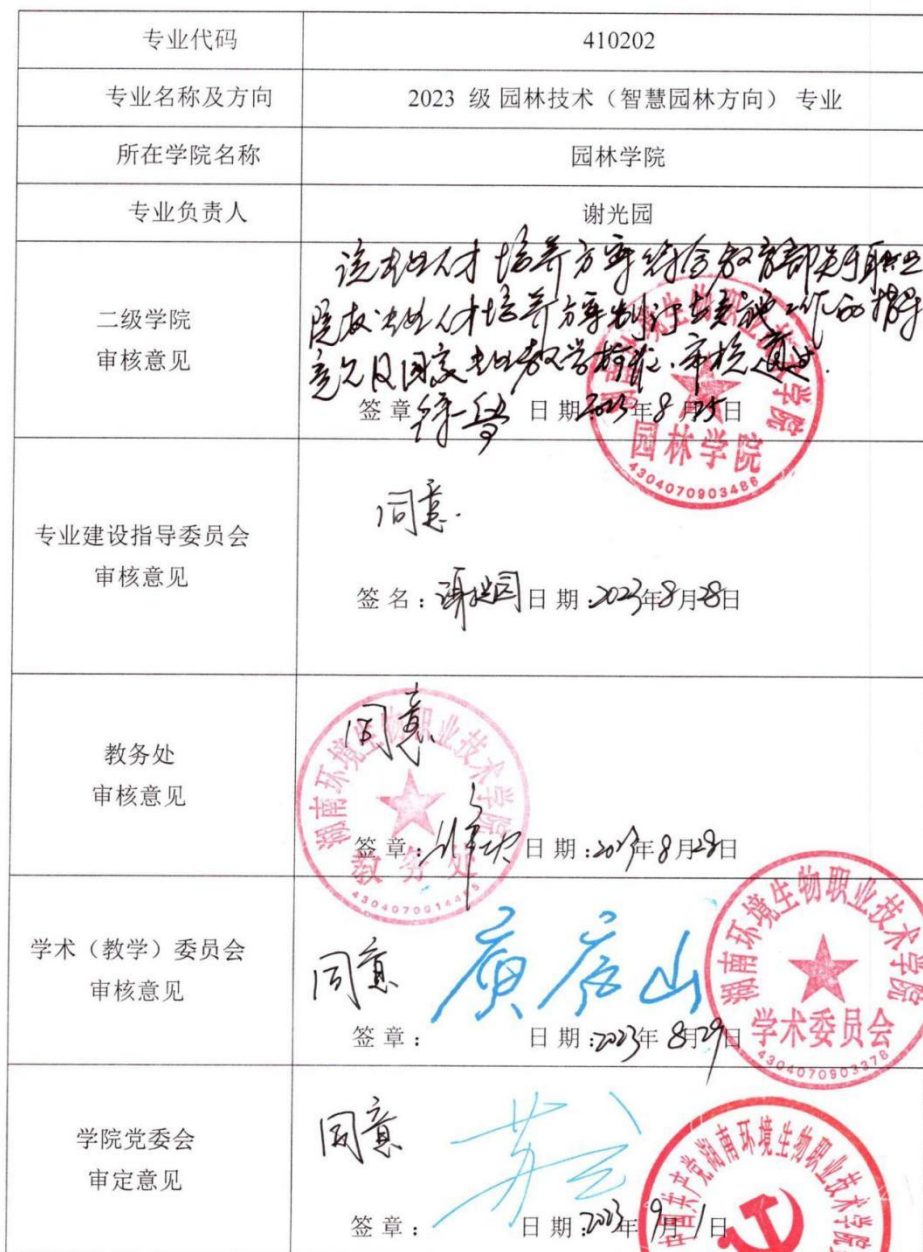 专业代码 410202
专业名称及方向 2023 级 园林技术（智慧园林方向） 专业
所在学院名称 园林学院
专业负责人 谢光园
二级学院
审核意见
该专业人才培养方案符合教育部关于职业
院校专业人才培养方案制订与实施工作的指导
意见及国家专业教学标准.审核通过.
签章： 日期：2023年8月25日
湖南环境生物职业技术学院
园林学院
4304070903486
专业建设指导委员会
审核意见
同意.
签名：谢光园 日期：2023年8月28日
教务处
审核意见
同意
签章： 日期：2023年8月29日
湖南环境生物职业技术学院
教务处
学术（教学）委员会
审核意见
同意
签章： 日期：2023年 8月29日
湖南环境生物职业技术学院
学术委员会
4304070903378
学院党委会
审定意见
同意
签章： 日期：2023年 9月1日
中国共产党湖南环境生物职业技术学院